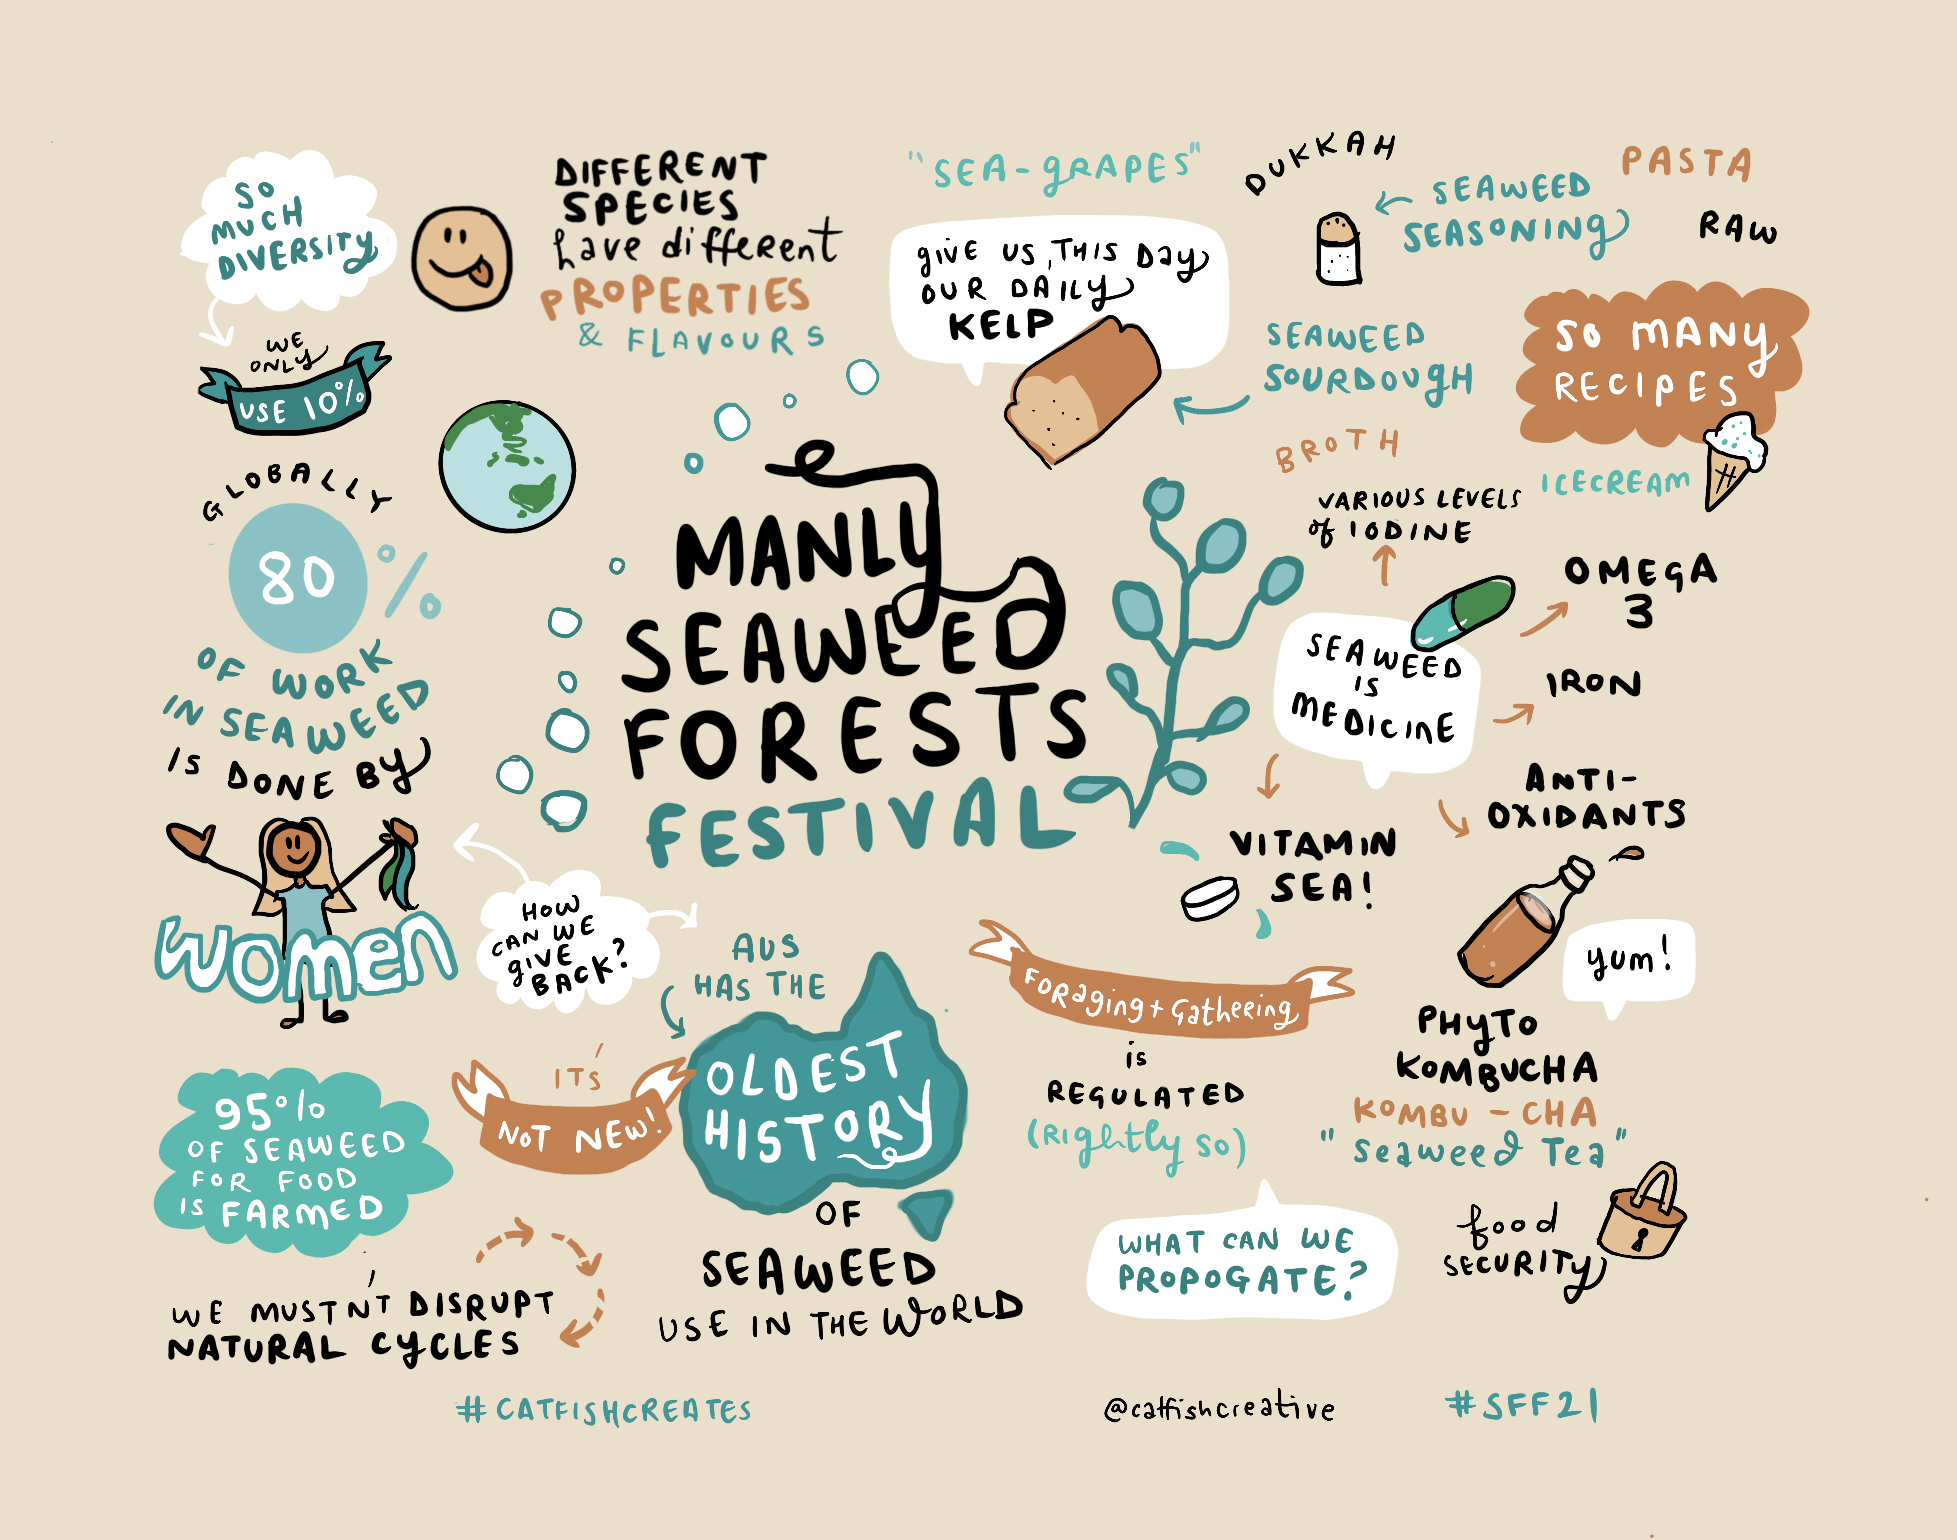 SO
MUCH
DIVERSITY
WE
ONLY
USE 10%
DIFFERENT
SPECIES
have different
PROPERTIES
& FLAVOURS
"SEA-GRAPES"
GIVE US, THIS DAY
OUR DAILY
KELP
DUKKAH
SEAWEED
SEASONING
PASTA
RAW
SEAWEED
SOURDOUGH
SO MANY
RECIPES
BROTH
ICECREAM
GLOBALLY
80%
OF WORK
IN SEAWEED
IS DONE BY
WOMEN
MANLY
SEAWEED
FORESTS
FESTIVAL
VARIOUS LEVELS
of IODINE
OMEGA
3
SEAWEED
IS
MEDICINE
IRON
ANTI-
OXIDANTS
VITAMIN
SEA!
HOW
CAN WE
GIVE
BACK?
AUS
HAS THE
OLDEST
HISTORY
OF
SEAWEED
USE IN THE WORLD
IT'S
NOT NEW!
95%
OF SEAWEED
FOR FOOD
IS FARMED
WE MUSTN'T DISRUPT
NATURAL CYCLES
Foraging + Gathering
is
REGULATED
(Rightly so)
yum!
PHYTO
KOMBUCHA
KOMBU - CHA
"Seaweed Tea"
WHAT CAN WE
PROPOGATE?
food
SECURITY
#CATFISHCREATES
@catfishcreative
#SFF21